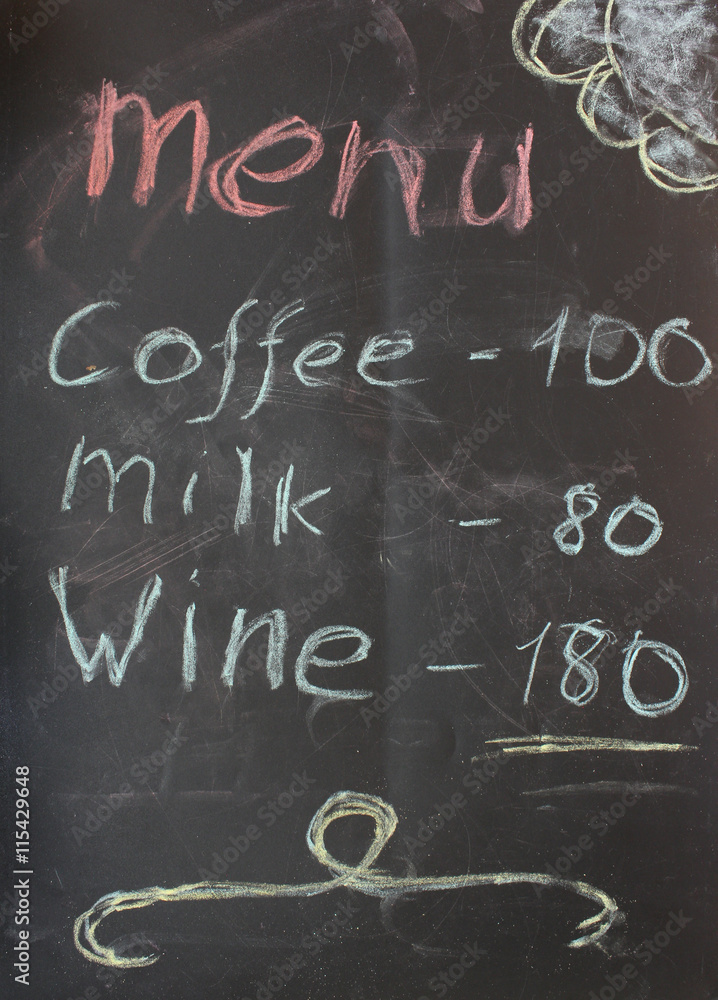 menu
Coffee - 100
milk - 80
Wine - 180
Adobe Stock | #115429648